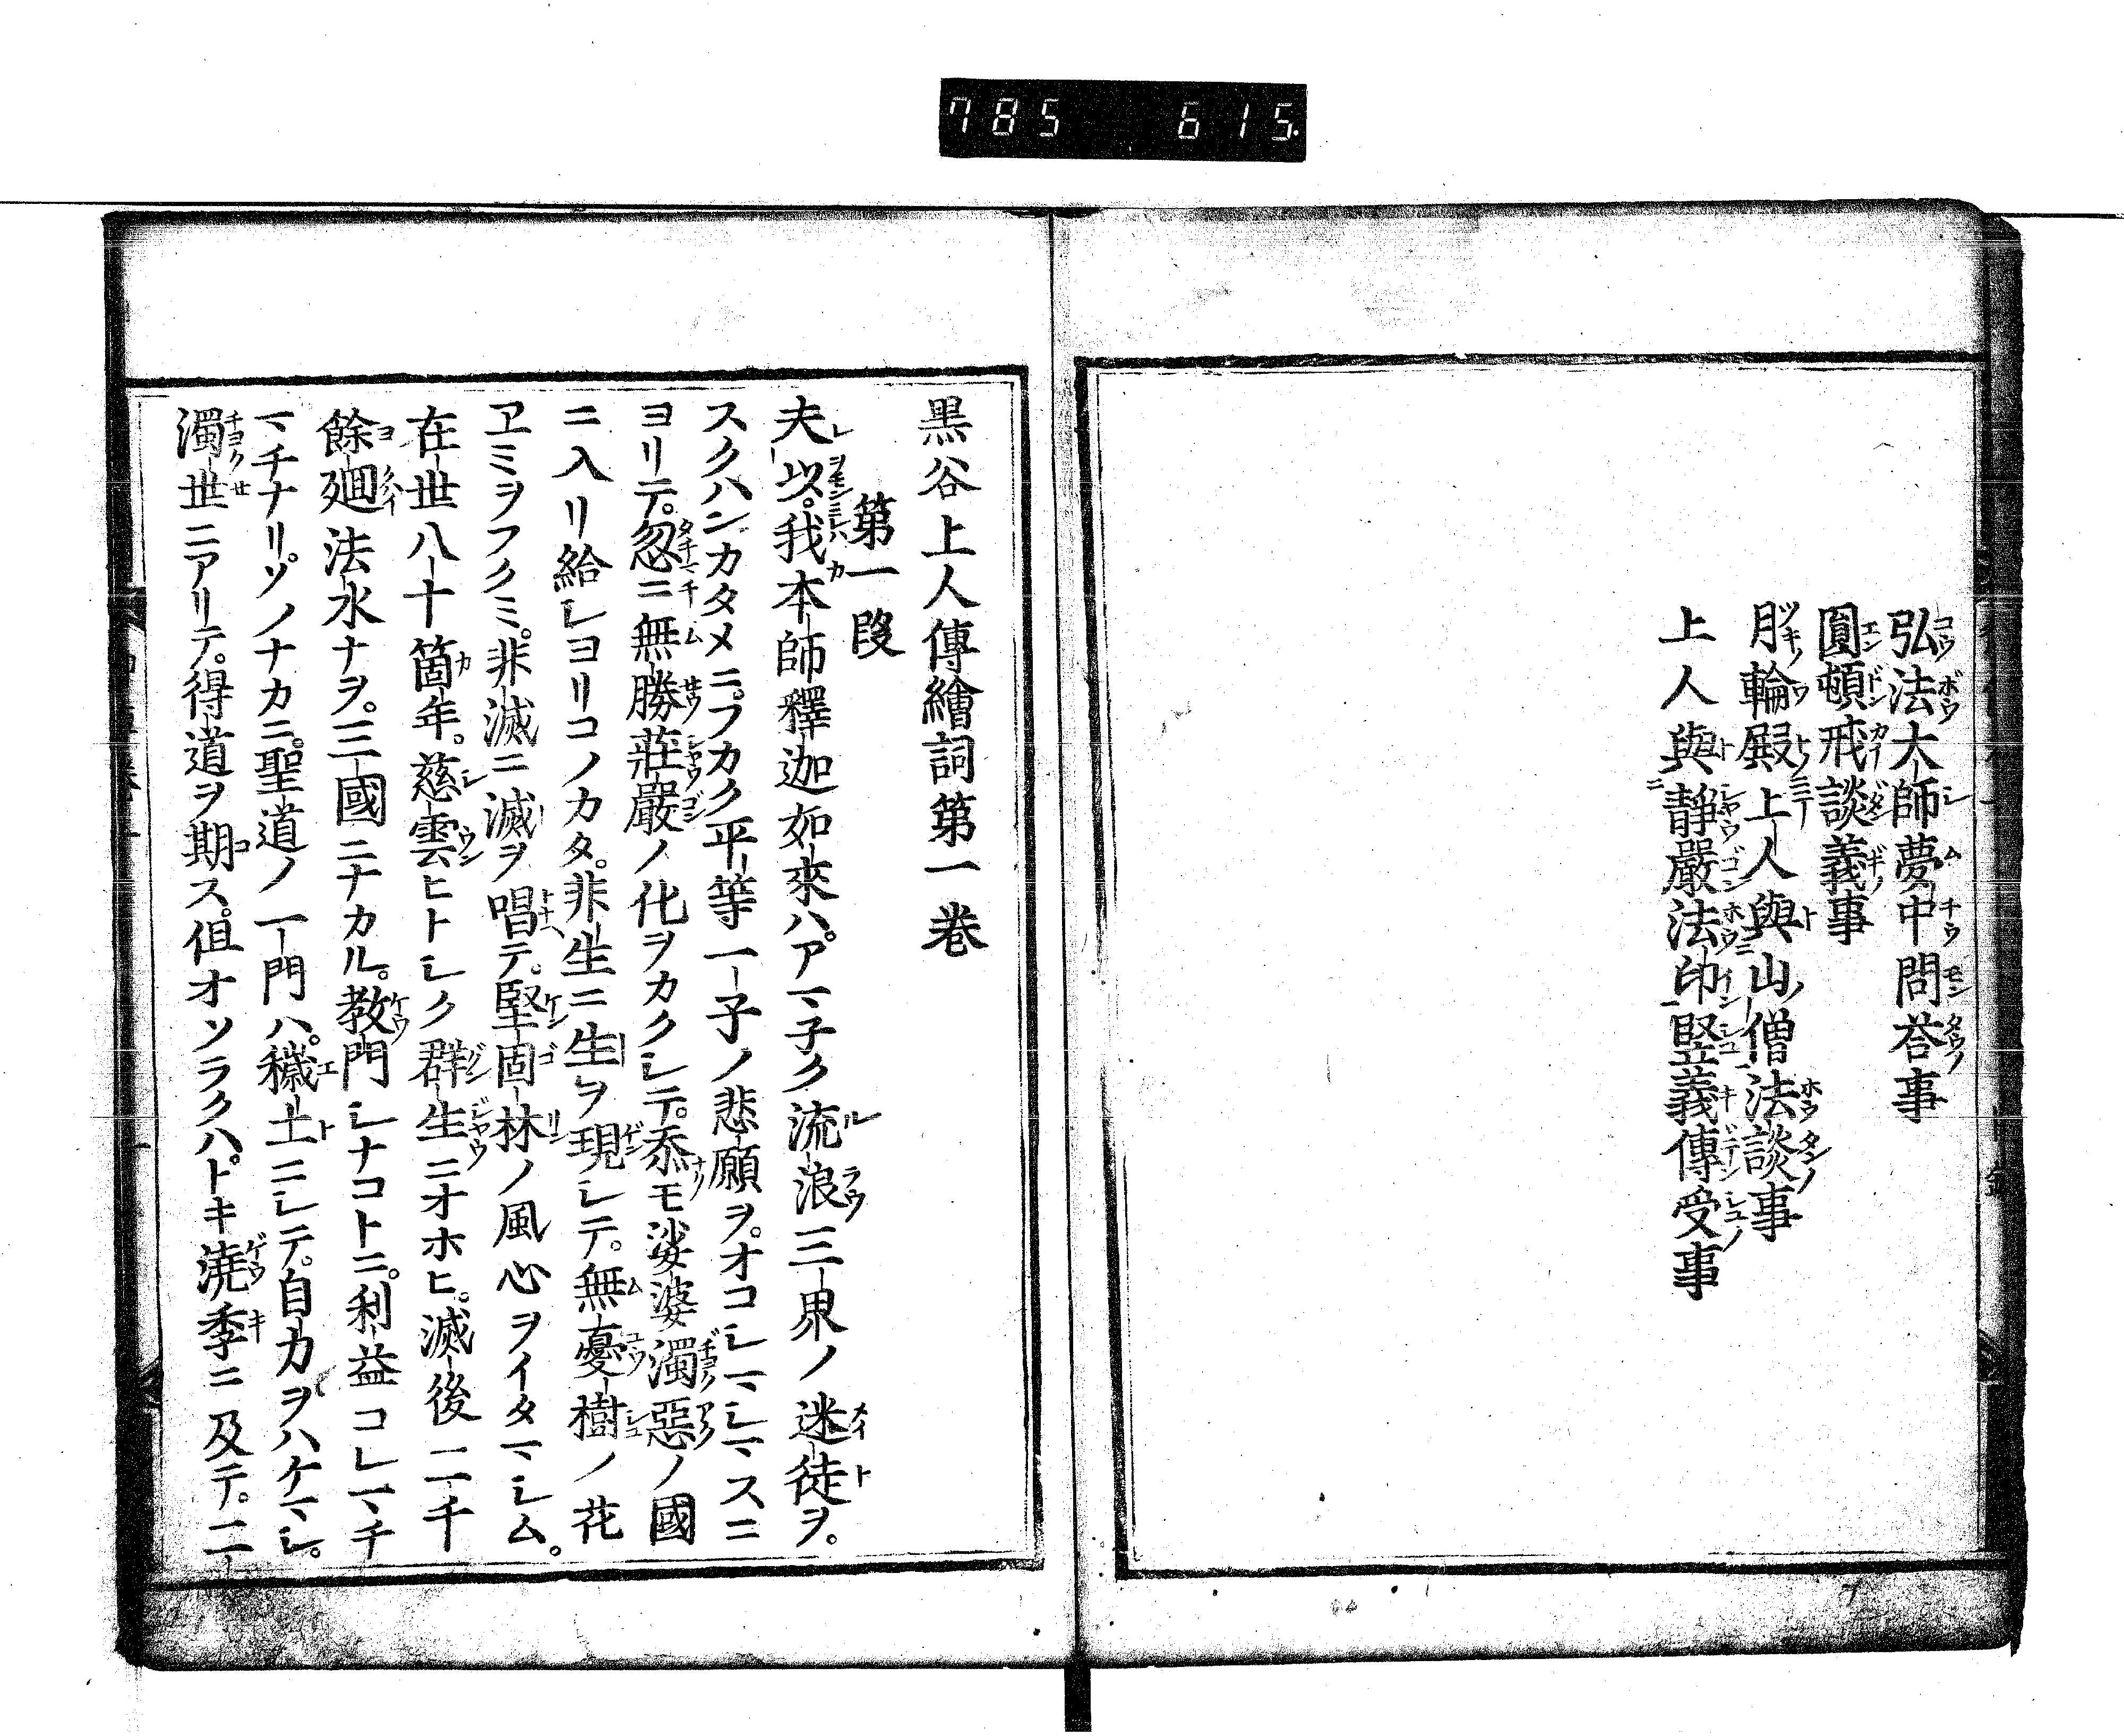 785 615
弘法大師夢中問荅事
圓頓戒談義事
月輪殿上人與山僧法談事
上人與靜嚴法印竪義傳受事
黒谷上人傳繪詞第一巻
第一段
夫以。我本師釋迦如來ハ。アマ子ク流浪三界ノ迷徒ヲ。
スクハンカタメニ。フカク平等一子ノ悲願ヲ。オコシマシマスニ
ヨリテ。忽ニ無勝莊嚴ノ化ヲカクシテ。忝モ娑婆濁惡ノ國
ニ入リ給シヨリコノカタ。非生ニ生ヲ現シテ。無憂樹ノ花
ヱミヲフクミ。非滅ニ滅ヲ唱テ。堅固林ノ風心ヲイタマシム。
在世八十箇年。慈雲ヒトシク群生ニオホヒ。滅後二千
餘廻法水ナヲ。三國ニナカル。教門シナコトニ。利益コレマチ
マチナリ。ソノナカニ。聖道ノ一門ハ。穢土ニシテ。自力ヲハケマシ。
濁世ニアリテ。得道ヲ期ス。但オソラクハ。トキ澆季ニ及テ。二